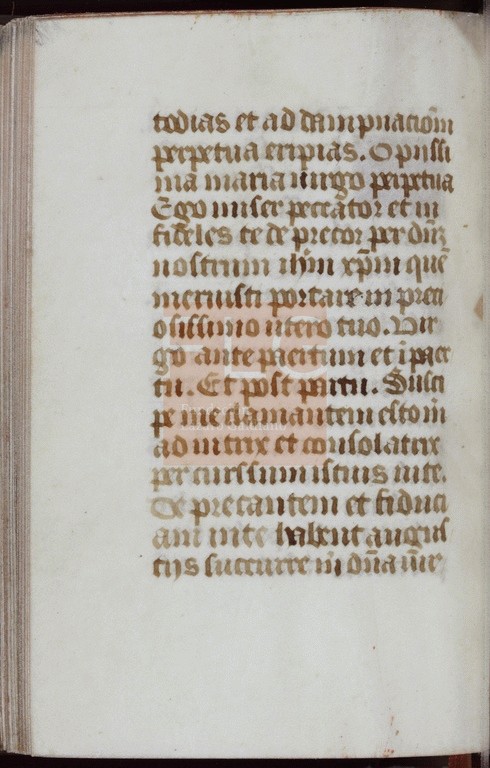 todias et ad dampnacio͞m
perpetua eripias. O pussi
ma maria uirgo perpetua
Ego miser peccator et in
fideles te de precor per dn͞z
nostrum ihm͞ xp͞m que͞
meruisti portare in preci
osissimo utero tuo. Vir
go ante partum et i͞ par
tu. Et post partu. Susci
pe me clamantem esto m͞
ad iutrix et consolatrix
per curssum istius uite.
De precantem et fiduci
am in te habent angus
tijs succurre m͞ dn͞a